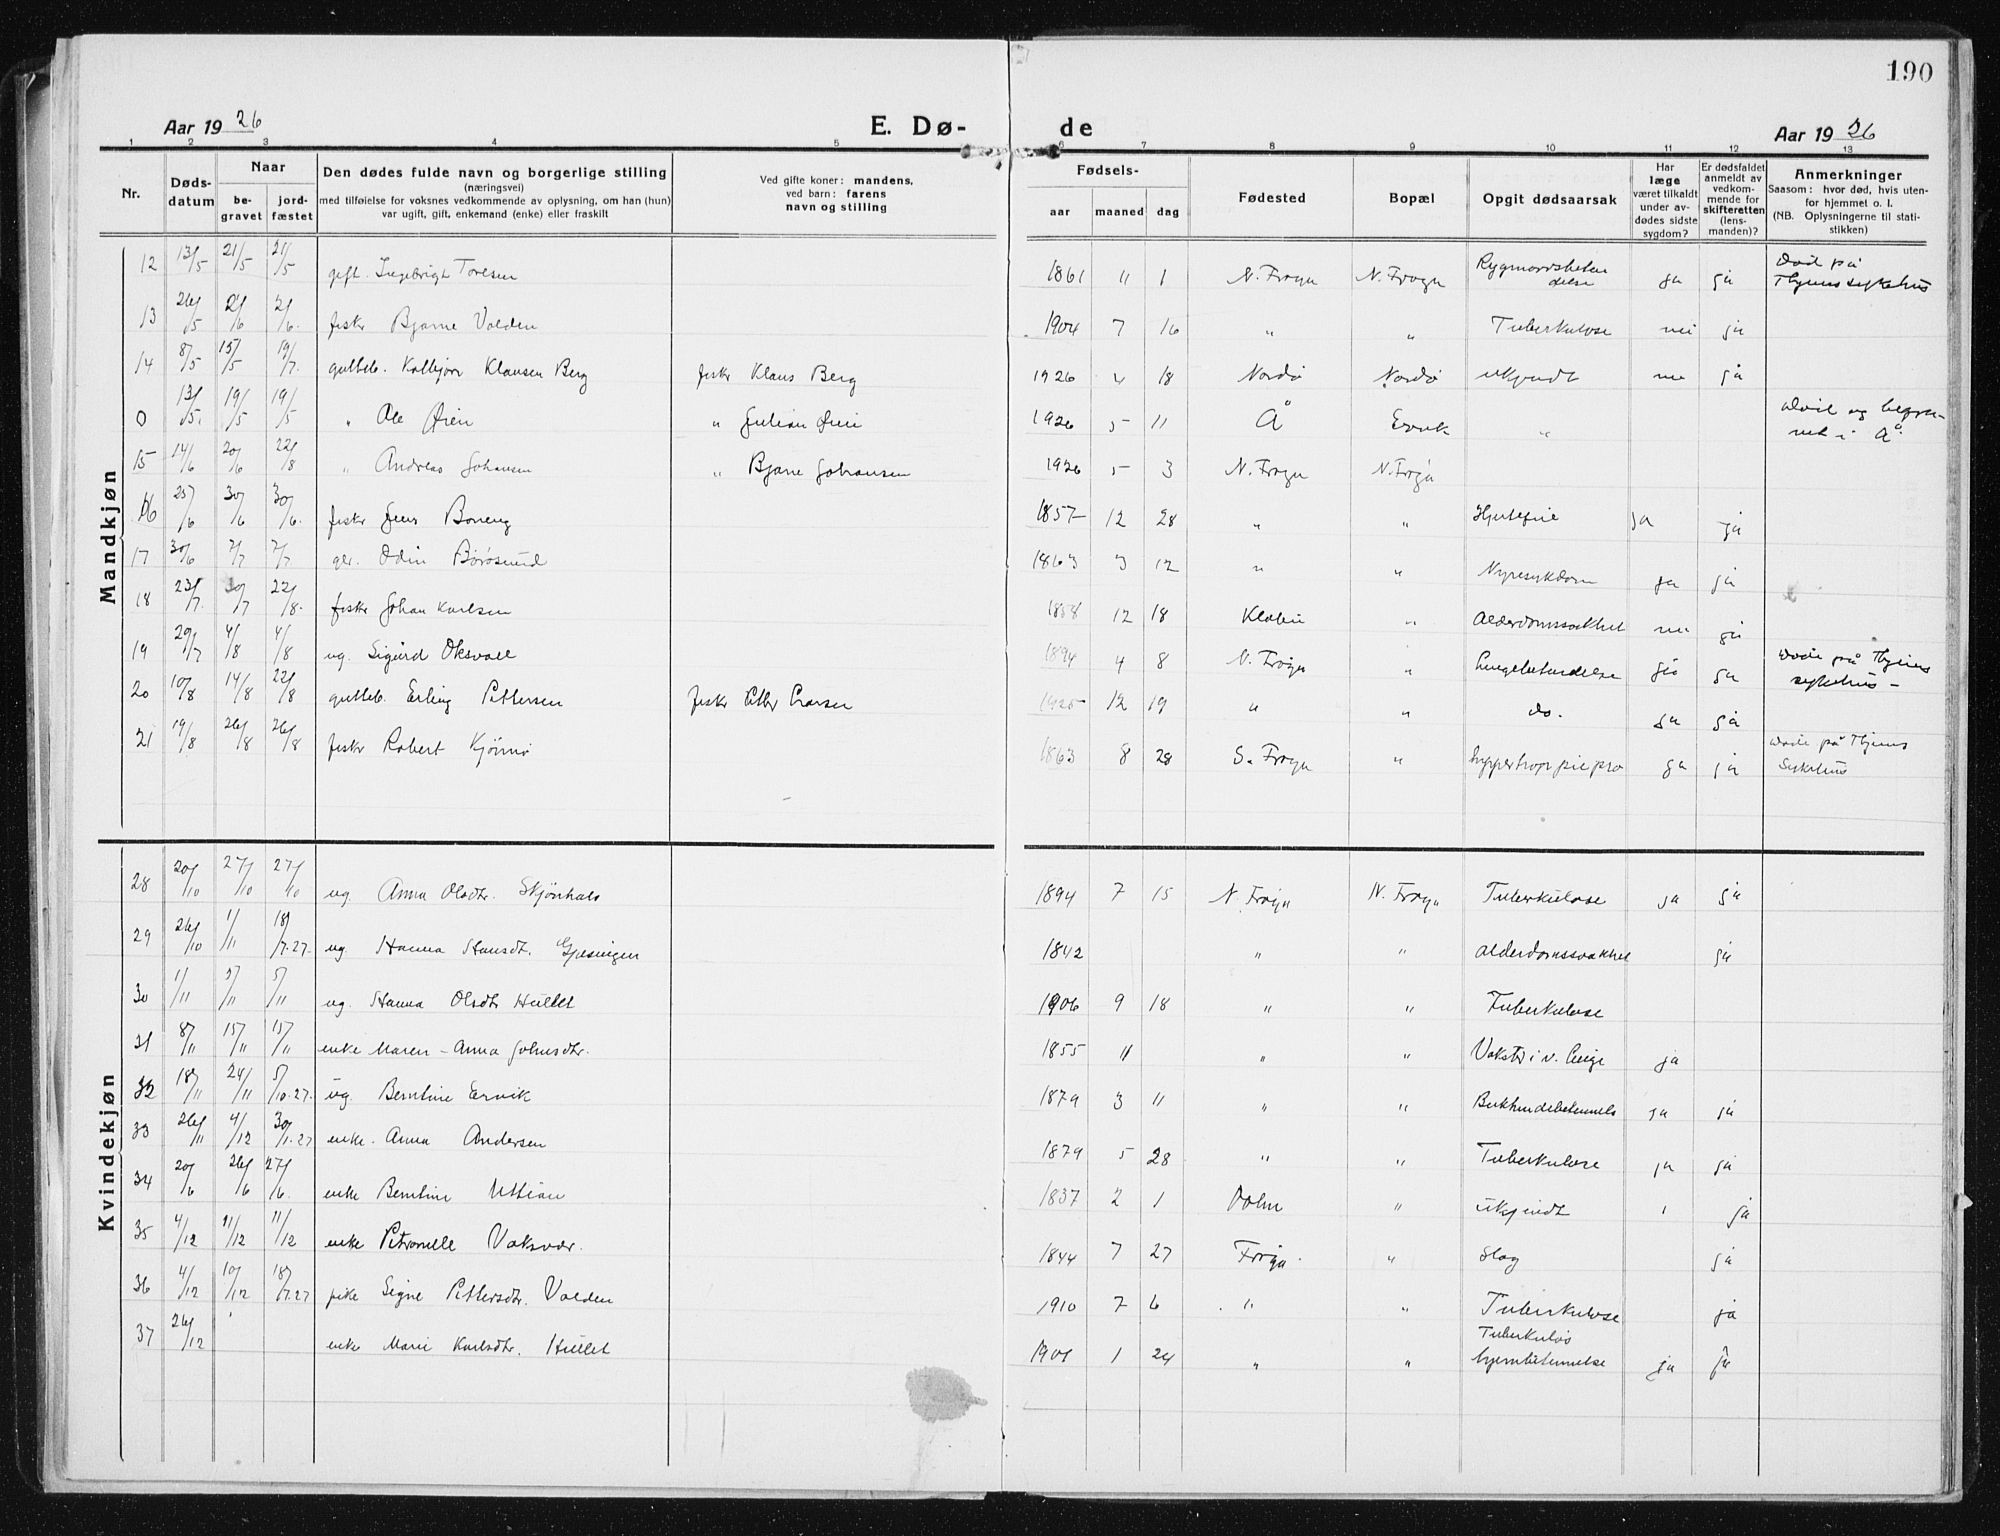 190
Aar 19 26 E. Dø- de Aar 19 26
1 2 3 4 5 6 7 8 9 10 11 12 13
Nr. Døds-datum Naar begravet jordfæstet
Den dødes fulde navn og borgerlige stilling
(næringsvei)
med tilføielse for voksnes vedkommende av oplysning, om han (hun)
var ugift, gift, enkemand (enke) eller fraskilt
Ved gifte koner: mandens,
ved barn: farens
navn og stilling
Fødsels- aar maaned dag Fødested Bopæl Opgit dødsaarsak
Har læge været tilkaldt under avdødes sidste sygdom?
Er dødsfaldet anmeldt av vedkommende for skifteretten (lensmanden)?
Anmerkninger
Saasom: hvor død, hvis utenfor hjemmet o. l.
(NB. Oplysningerne til statistikken)
Mandkjøn
12 13/5 21/5 21/5 gift. Ingebrigt Torlsen 1861 11 1 N. Frøya N. Frøya ja ja Død på Thjems sykehus
13 26/5 2/6 2/6. fisker Bjarne Valden 1904 7 16 " " Tuberkulose nei ja
14 8/5 15/5 19/7. gutteb. Kolbjørn Klausen Berg fisker Klaus Berg 1926 4 18 Nordö Nordö ukjendt nei jå
0 13/5. 19/5 19/5 " Ole Øien " Julian Øien 1926 5 11 Å Ervik " Död og begravet i Å.
15 14/6 20/6 22/8 " Andreas Johansen " Bjarne Johansen 1926 5 3 N. Frøya N. Frøya
16 25/6 30/6 30/6. fisker Jens Boneng 1857 12 28 " " Hjertefeil ja ja
17 30/6 7/7 7/7. Odin Börösund 1863 3 12 " " Nyresykdom ja ja
18 23/7. 30/7 22/8. fisker Johan Karlsen 1858 12 18 Klæbu " Alderdomssvakhet nei ja
19 29/7 4/8 4/8 ug. Sigurd Oksvoll 1894 4 8 N. Frøya " Lungebetændelse ja ja Døde på Thjems sykehus -
20 10/8 14/8 22/8 gutteb. Erling Pettersen fisker Petter Larsen 1925 12 19 " " do. ja ja
21 19/8 26/8 26/8 fisker Robert Kjørnö 1863 8 28 S. Frøya " hyppertroppie pro ja ja Døde på Thjems Sykehus
Kvindekjøn
28 20/10 27/10 27/10 ug. Anna Olsdtr. Skjönhals 1894 7 15 N. Frøya N. Frøya Tuberkulose ja ja
29 26/10 1/11 18/7.27. ug. Hanna Hansdt. Gjæsingen 1842 " " Alderdomssvakhet ja
30 1/11 5/11 5/11 ug. Hanna Olsdtr Hullet 1906 9 18 " " Tuberkulose
31 8/11 15/11 15/11 enke Maren - Anna Johnsdtr. 1855 11 " " Vakst i v. Lunge ja
32 18/11 24/11 5/10.27. ug. Berntine Ervik 1879 3 11 " " ja ja
33 26/11 4/12 30/1.27 enke. Anna Andersen 1879 5 28 " " Tuberkulose ja ja
34 20/6 26/6 27/6. enke Berntine Uttian 1837 2 1 Dolm " ukjendt ja
35 4/12 11/12 11/12 enke Petronelle Vaksvær. 1844 7 27 Frøya. " Slag ja
36 4/12 10/12 18/7.27 pike Signe Pettersdtr. Valden 1910 7 6 " " Tuberkulose ja
37 26/12 enke Marie Karlsdtr. Hullet 1901 1 24 " " Tuberkuløs hjernbetennelse ja ja